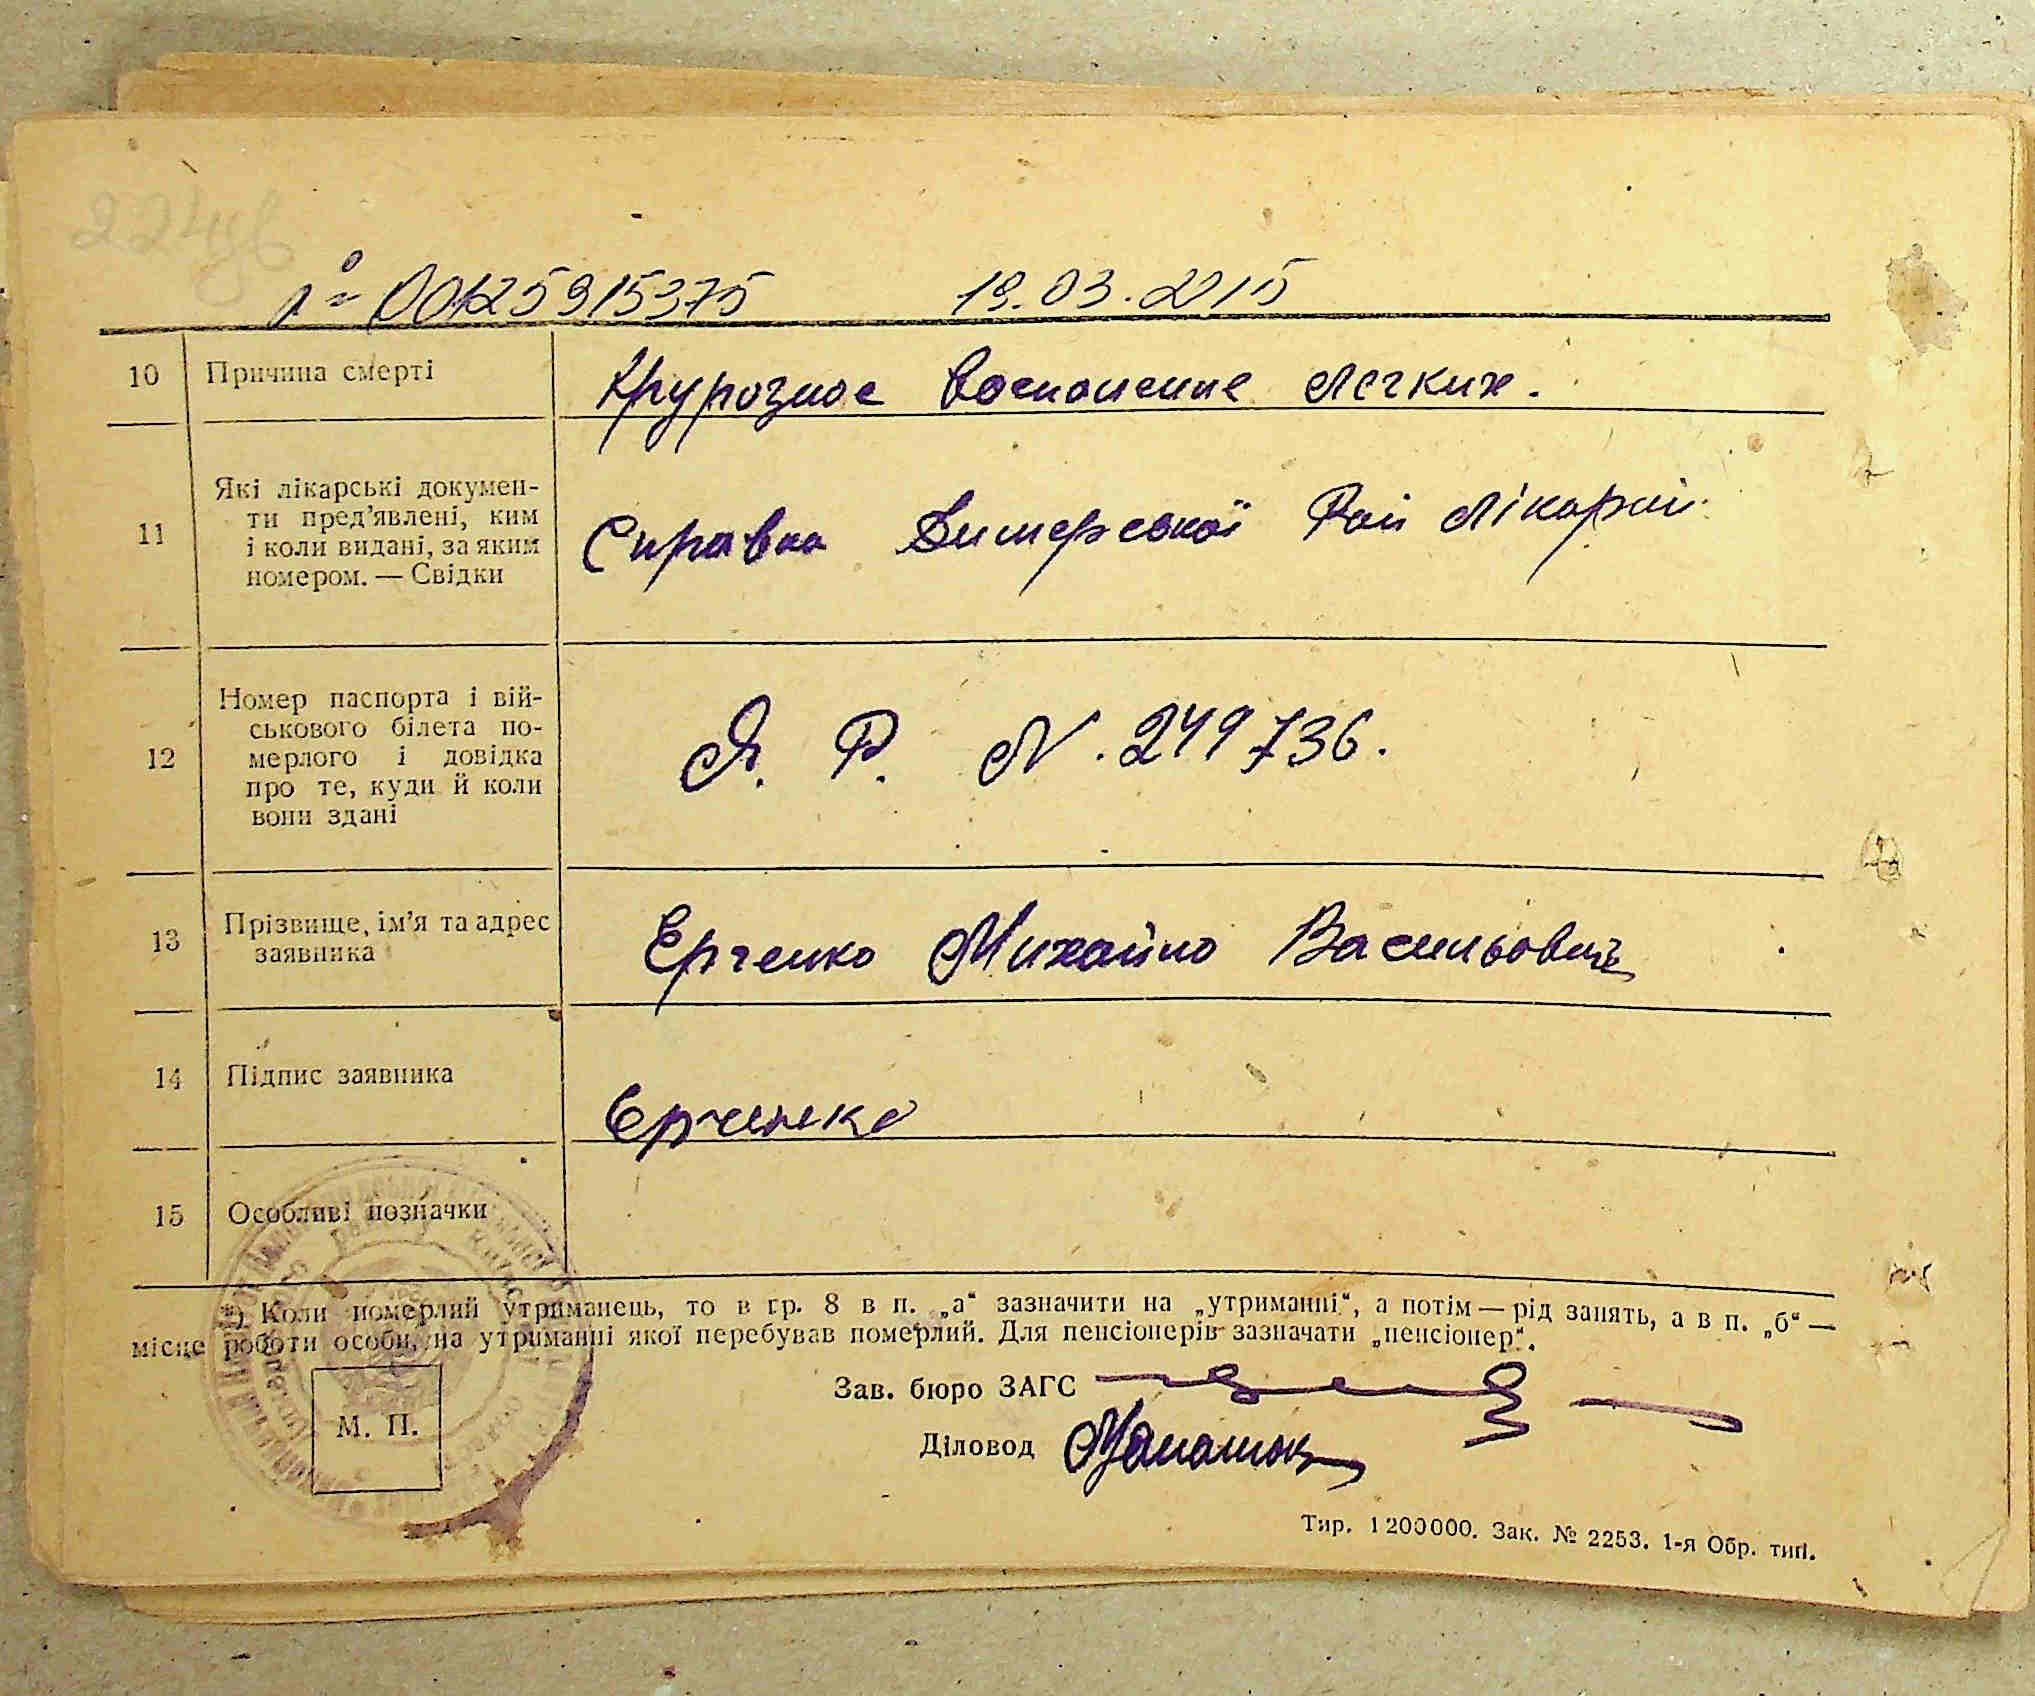 № 00125915375 19.03.2015
10 Причина смерті Крупозное восполение легких.
11 Які лікарські документи пред'явлені, ким і коли видані, за яким номером. — Свідки
Справка Димерської Рай лікарні
12 Номер паспорта і військового білета померлого і довідка про те, куди й коли вони здані
Я. Р. N. 249736.
13 Прізвище, ім'я та адрес заявника Ерченко Михайло Васильович
14 Підпис заявника Єрченко
15 Особливі позначки
*) Коли померлий утриманець, то в гр. 8 в п. „а“ зазначити на „утриманні“, а потім — рід занять, а в п. „б“ —
місце роботи особи, на утриманні якої перебував померлий. Для пенсіонерів зазначати „пенсіонер“.
Зав. бюро ЗАГС
Діловод
М. П.
Тир. 1200000. Зак. № 2253. 1-я Обр. тип.